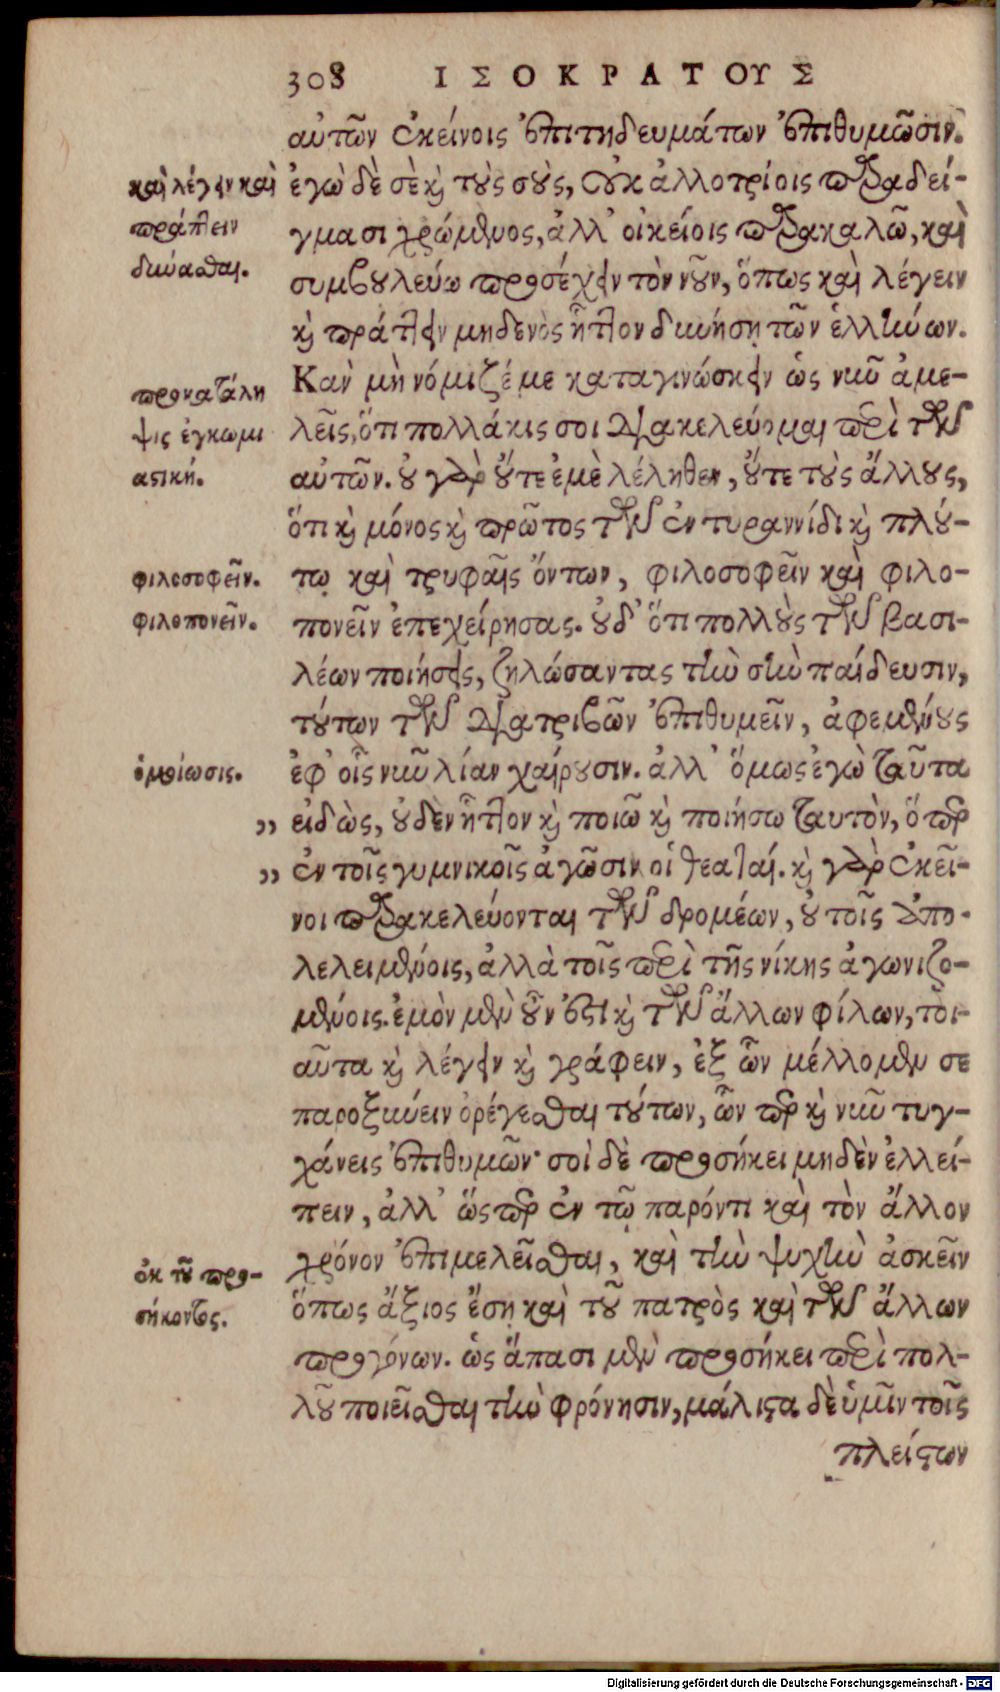 308 ΙΣΟΚΡΑΤΟΥΣ
αὐτῶν ἐκείνοις ἐπιτηδευμάτων ἐπιθυμῶσιν.
ἐγὼ δὲ σὲ καὶ τοὺς σοὺς, οὐκ ἀλλοτρίοις παραδεί-
γμασι χρώμενος, ἀλλ' οἰκείοις παρακαλῶ, καὶ
συμβουλεύω προσέχειν τὸν νοῦν, ὅπως καὶ λέγειν
καὶ πράττειν μηδενὸς ἧττον δυνήσῃ τῶν ἑλλήνων.
Καὶ μὴ νόμιζέ με καταγινώσκειν ὡς νῦν ἀμε-
λεῖς, ὅτι πολλάκις σοι διακελεύομαι περὶ τῶν
αὐτῶν. οὐ γὰρ οὔτε ἐμὲ λέληθεν, οὔτε τοὺς ἄλλους,
ὅτι καὶ μόνος καὶ πρῶτος τῶν ἐν τυραννίδι καὶ πλού-
τῳ καὶ τρυφαῖς ὄντων, φιλοσοφεῖν καὶ φιλο-
πονεῖν ἐπεχείρησας. οὐδ' ὅτι πολλοὺς τῶν βασι-
λέων ποιήσεις, ζηλώσαντας τὴν σὴν παίδευσιν,
τούτων τῶν διατριβῶν ἐπιθυμεῖν, ἀφεμένους
ἐφ' οἷς νῦν λίαν χαίρουσιν. ἀλλ' ὅμως ἐγὼ ταῦτα
„ εἰδὼς, οὐδὲν ἧττον καὶ ποιῶ καὶ ποιήσω ταυτὸν, ὅπερ
„ ἐν τοῖς γυμνικοῖς ἀγῶσιν οἱ θεαταί. καὶ γὰρ ἐκεῖ-
νοι παρακελεύονται τῶν δρομέων, οὐ τοῖς ἀπο-
λελειμμένοις, ἀλλὰ τοῖς περὶ τῆς νίκης ἀγωνιζο-
μένοις. ἐμὸν μὲν οὖν ἐστὶ καὶ τῶν ἄλλων φίλων, τοι-
αῦτα καὶ λέγειν καὶ γράφειν, ἐξ ὧν μέλλομεν σε
παροξύνειν ὀρέγεσθαι τούτων, ὧν περ καὶ νῦν τυγ-
χάνεις ἐπιθυμῶν· σοὶ δὲ προσήκει μηδὲν ἐλλεί-
πειν, ἀλλ' ὥσπερ ἐν τῷ παρόντι καὶ τὸν ἄλλον
χρόνον ἐπιμελεῖσθαι, καὶ τὴν ψυχὴν ἀσκεῖν
ὅπως ἄξιος ἔσῃ καὶ τοῦ πατρὸς καὶ τῶν ἄλλων
προγόνων. ὡς ἅπασι μὲν προσήκει περὶ πολ-
λοῦ ποιεῖσθαι τὴν φρόνησιν, μάλιστα δὲ ὑμῖν τοῖς
πλείστων
καὶ λέγειν καὶ
πράττειν
δύνασθαι.
προκατάλη
ψις ἐγκωμι
αστική.
φιλοσοφεῖν.
φιλοπονεῖν.
ὁμοίωσις.
ἐκ τοῦ προ-
σήκοντος.
Digitalisierung gefördert durch die Deutsche Forschungsgemeinschaft - DFG